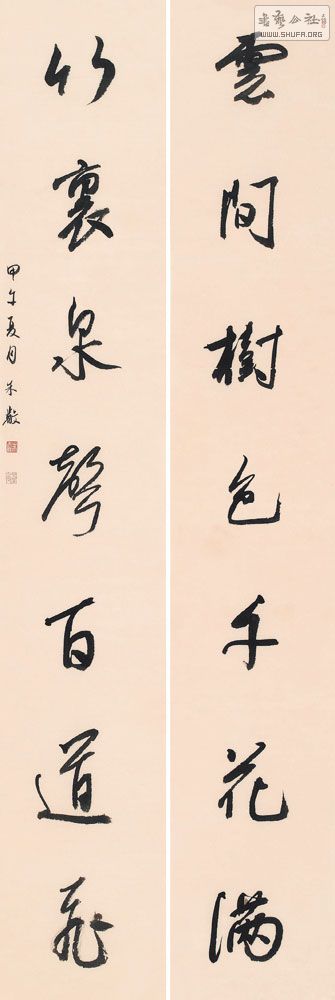 雲間樹色千花滿
竹裏泉聲百道飛
甲午夏月 朱敏
书艺公社
WWW.SHUFA.ORG